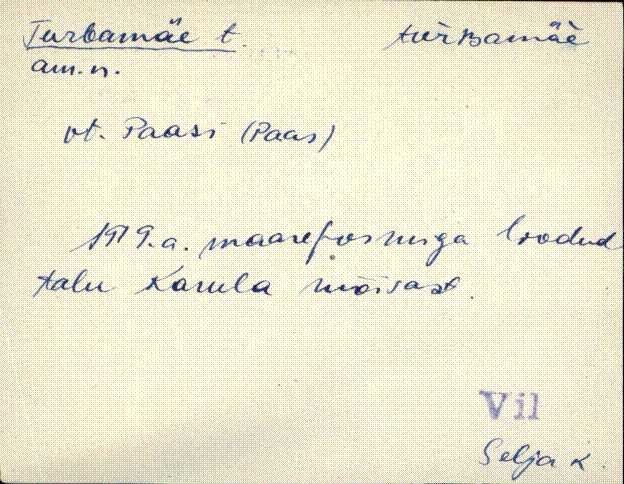 Turbamäe t. tùrʙamäè
am.n.
vt. Paasi (Paas)
1919.a. maareformiga loodud
talu Karula mõisast.
Vil
Selja k.